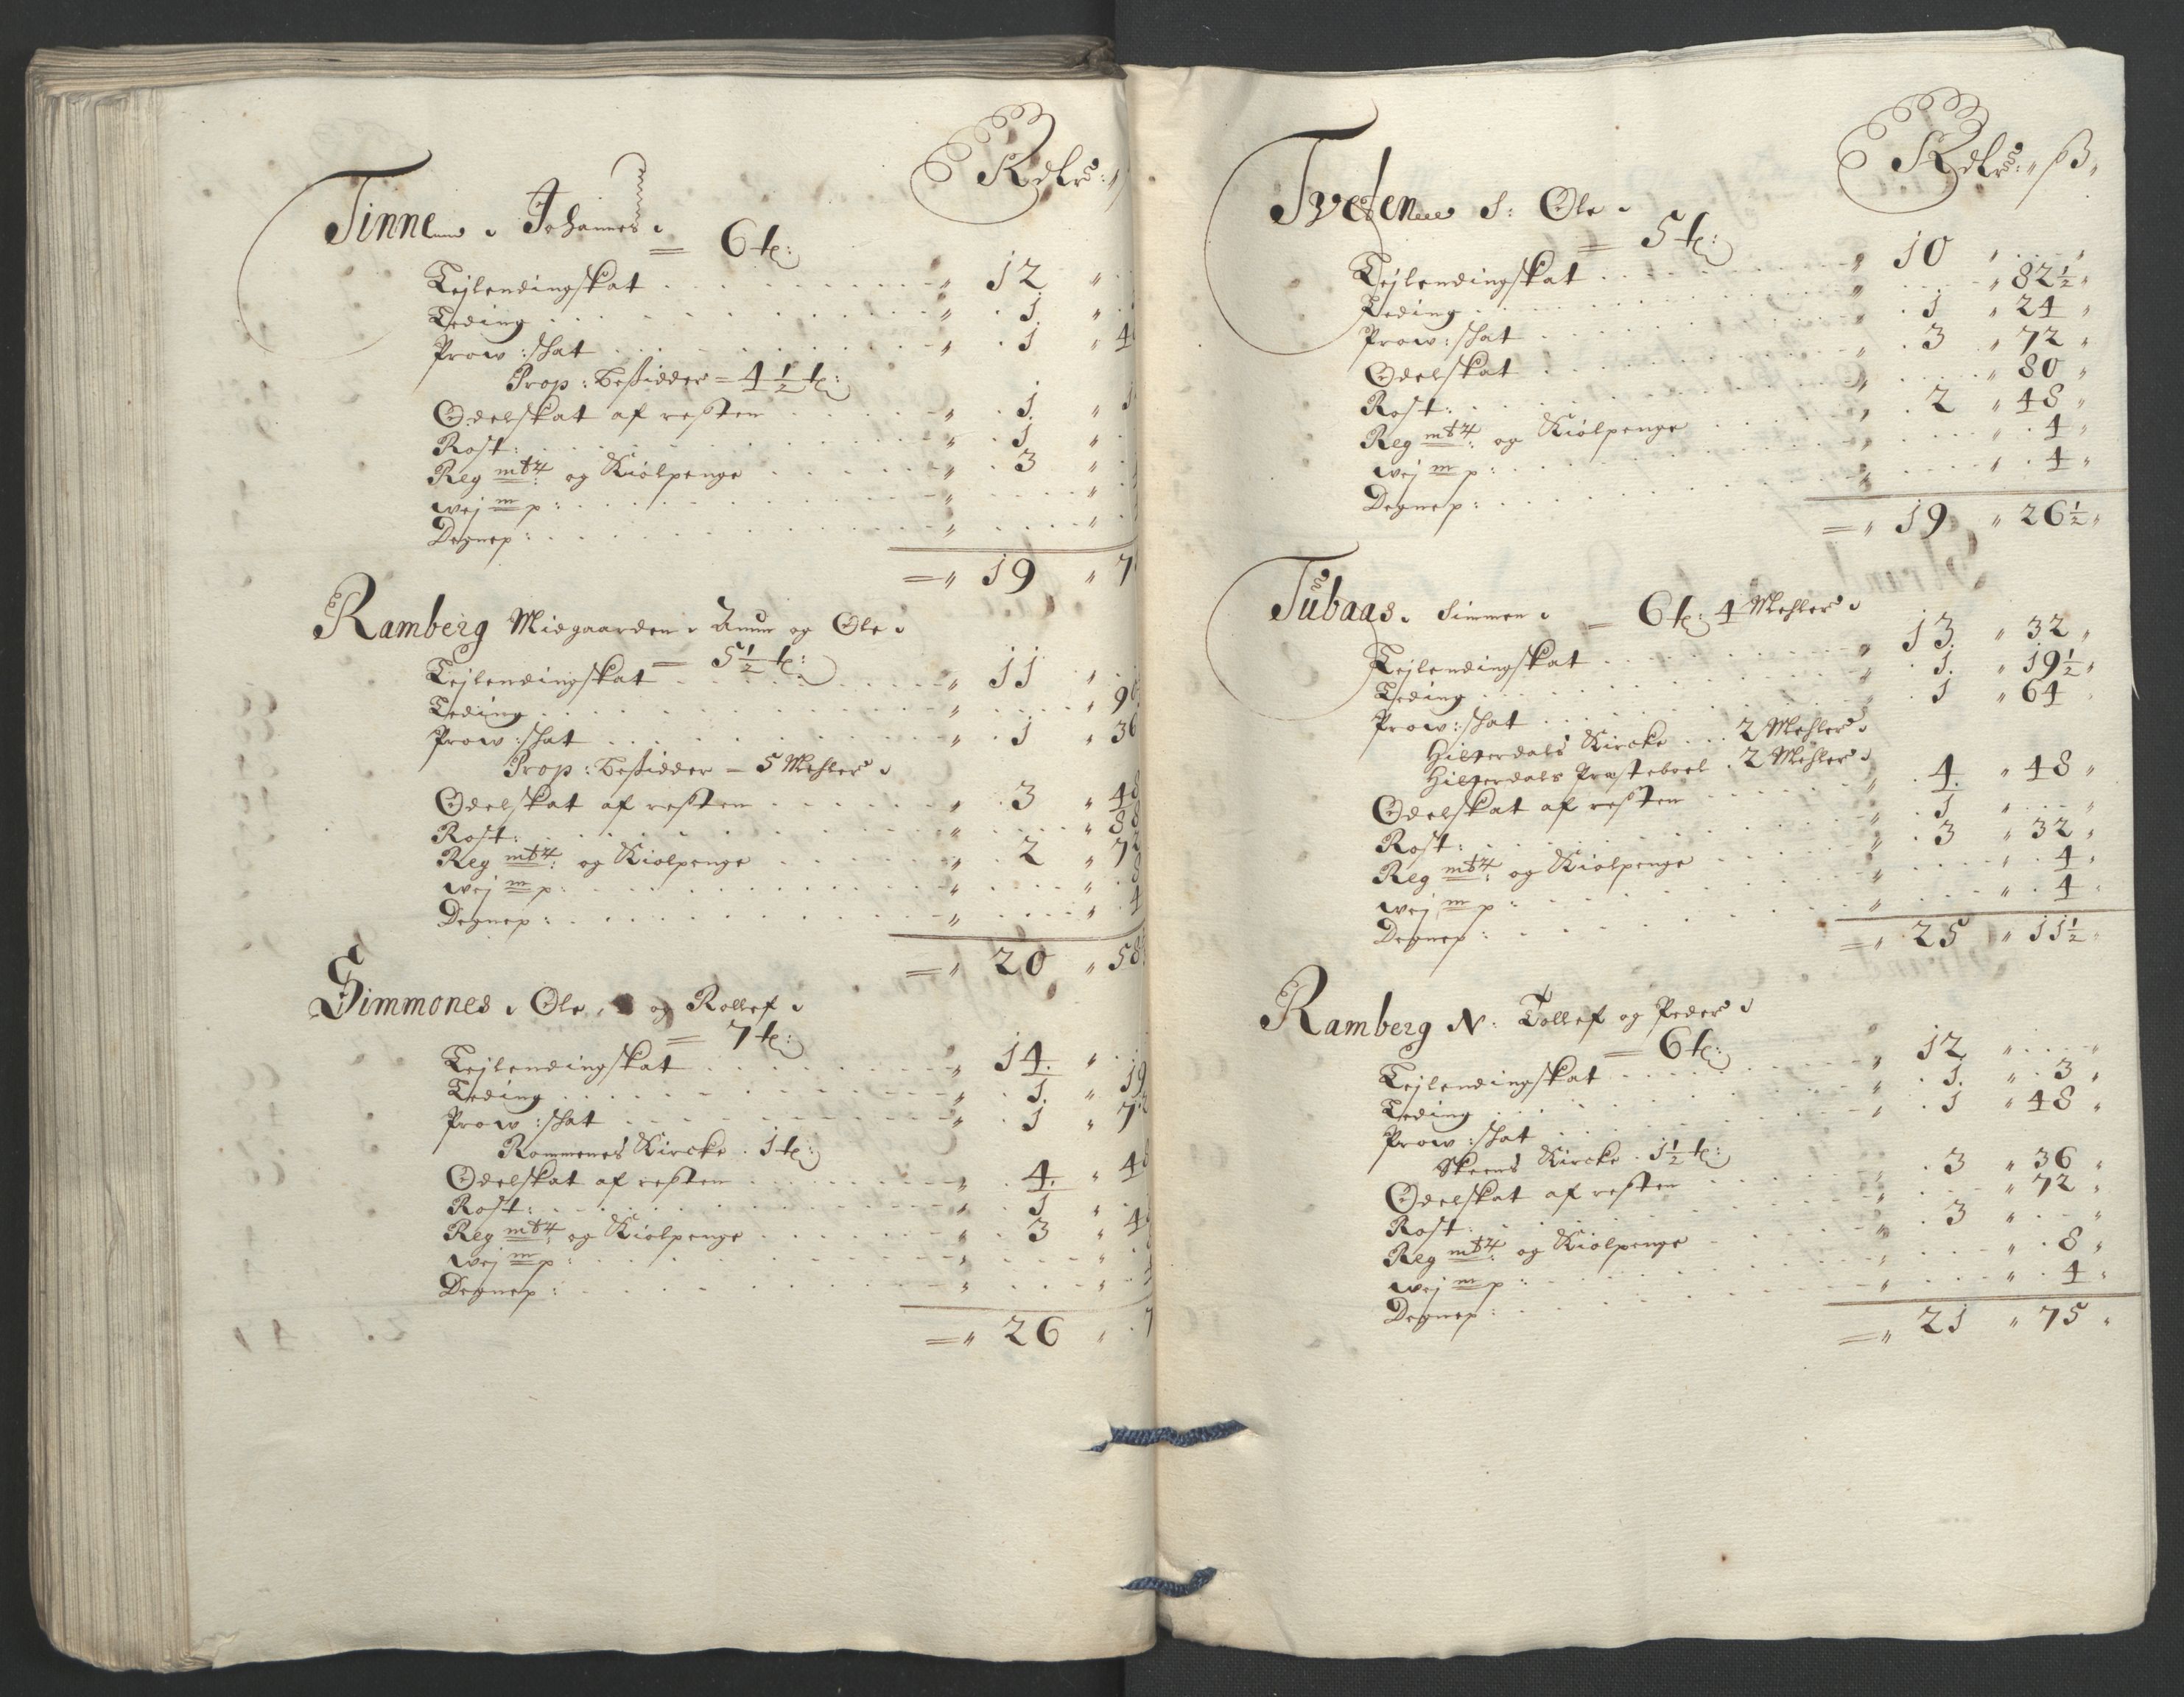 Rdlr: „
Tinne „ Johannes „
= 6 t:
Lejlendingskat „ 12 „
Leding „ 1 „
Prow: shat „ 1 „ 4
Prop: Besidder = 4½ t:
Odelskat af resten „ 1 „
Rost: „ 1 „
Reg mtr: og Kiølpenge „ 3 „
wej m p: „ „
Degnep: „ „
= „ 19 „ 7
Ramberg Midgaarden „ og Ole „
= 5½ t:
Lejlendingskat „ 11 „
Leding „ „ 9
Prow: shat „ 1 „ 36
Prop: Besidder = 5 Mehler „
Odelskat af resten „ 3 „ 48
Rost: „ „ 88
Reg mtr: og Kiolpenge „ 2 „ 72
wej m p: „ „ 8
Degnep: „ „ 4
= „ 20 „ 58
Simmones „ Ole „ og Rollef „
= 7 t:
Lejlendingskat „ 14 „
Leding „ 1 „ 19
Prow: shat „ 1 „ 72
Rommenes Kircke . 1 t:
Odelskat af resten „ 4 „ 48
Rost: „ 1 „
Reg mtr: og Kiolpenge „ 3 „ 4
wej m p: „ „
Degnep: „ „
= „ 26 „ 7
Rdlr: „ ß „
Tveten S: Ole „
= 5 t:
Lejlendingskat „ 10 „ „
Leding „ „ 82½ „
Prow: shat „ 1 „ 24 „
Odelskat „ 3 „ 72 „
Rost: „ „ 80 „
Reg mtr: og Kiólpenge „ 2 „ 48 „
wej m p: „ „ 4 „
Degnep: „ „ 4 „
= „ 19 „ 26½ „
Tubaas „ Simmen „ = 6 t: 4 Mehler „
Lejlendingskat „ 13 „ 32 „
Leding „ 1 „ 19½ „
Prow: shat „ 1 „ 64 „
Hitterdals Kircke . . . 2 Mehler „
Hitterdals Præsteboel . 2 Mehler „
Odelskat af resten „ 4 „ 48 „
Rost: „ 1 „ „
Reg mtr: og Kiolpenge „ 3 „ 32 „
wej m p: „ „ 4 „
Degnep: „ „ 4 „
= „ 25 „ 11½ „
Ramberg N: Tollef og Peder „
= 6 t:
Lejlendingskat „ 12 „ „
Leding „ 1 „ 3 „
Prow: shat „ 1 „ 48 „
Skeens Kircke . 1½ t:
Odelskat af resten „ 3 „ 36 „
Rost: „ „ 72 „
Reg mtr: og Kiolpenge „ 3 „ „
wej m p: „ „ 8 „
Degnep: „ „ 4 „
= „ 21 „ 75 „